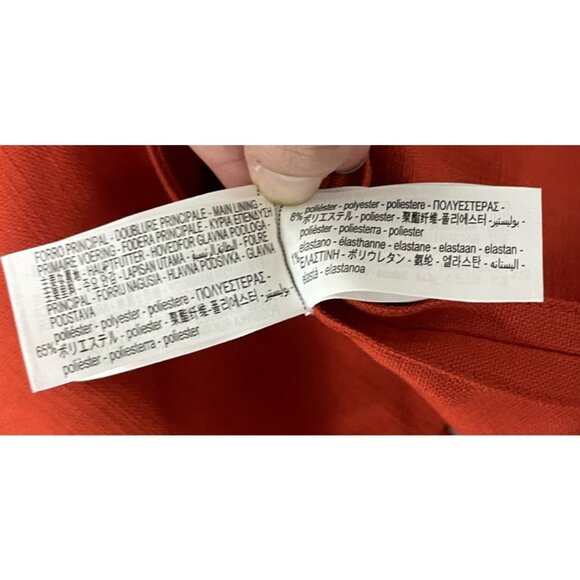 FORRO PRINCIPAL - DOUBLURE PRINCIPALE - MAIN LINING -
PRIMAIRE VOERING - FODERA PRINCIPALE - ΚΥΡΙΑ ΕΠΕΝΔΥΣΗ
HAUPTFUTTER - HOVEDFOR GLAVNA PODLOGA
LAPISAN UTAMA - البطانة الرئيسية - FOLRE
PRINCIPAL - FORRU NAGUSIA - HLAVNÁ PODŠÍVKA - GLAVNA
PODSTAVA
poliéster - polyester - poliestere - ΠΟΛΥΕΣΤΕΡΑΣ -
65% ポリエステル - poliester - 聚酯纤维 - 폴리에스터 - بوليستير -
polièster - poliesterra - poliester
poliéster - polyester - poliestere - ΠΟΛΥΕΣΤΕΡΑΣ -
8% ポリエステル - poliester - 聚酯纤维 - 폴리에스터 - بوليستير -
polièster - poliesterra - poliester
elastano - élasthanne - elastane - elastaan - elastan -
ΕΛΑΣΤΙΝΗ - ポリウレタン - 氨纶 - 엘라스탄 - الیستانه -
elastà - elastanoa